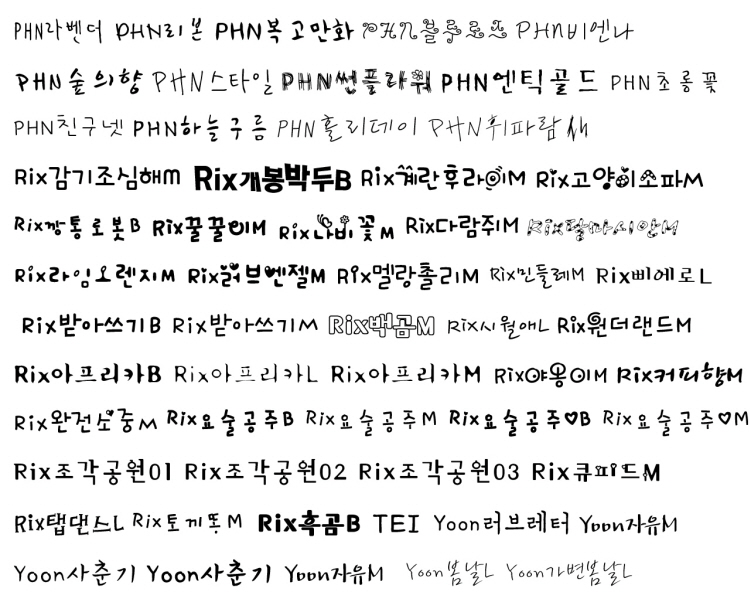 PHN라벤더 PHN리본 PHN복고만화 PHN블루로즈 PHN비엔나
PHN숲의향 PHN스타일 PHN썬플라워 PHN엔틱골드 PHN초롱꽃
PHN친구넷 PHN하늘구름 PHN홀리데이 PHN휘파람새
Rix감기조심해M Rix개봉박두B Rix계란후라이M Rix고양이소파M
Rix깡통로봇B Rix꿀꿀이M Rix나비꽃M Rix다람쥐M Rix달마시안M
Rix라임오렌지M Rix러브엔젤M Rix멜랑촐리M Rix민들레M Rix삐에로L
Rix받아쓰기B Rix받아쓰기M Rix백곰M Rix시월애L Rix원더랜드M
Rix아프리카B Rix아프리카L Rix아프리카M Rix야옹이M Rix커피향M
Rix완전소중M Rix요술공주B Rix요술공주M Rix요술공주♡B Rix요술공주♡M
Rix조각공원01 Rix조각공원02 Rix조각공원03 Rix큐피드M
Rix탭댄스L Rix토끼똥M Rix흑곰B TEI Yoon러브레터 Yoon자유M
Yoon사춘기 Yoon사춘기 Yoon자유M Yoon봄날L Yoon가변봄날L